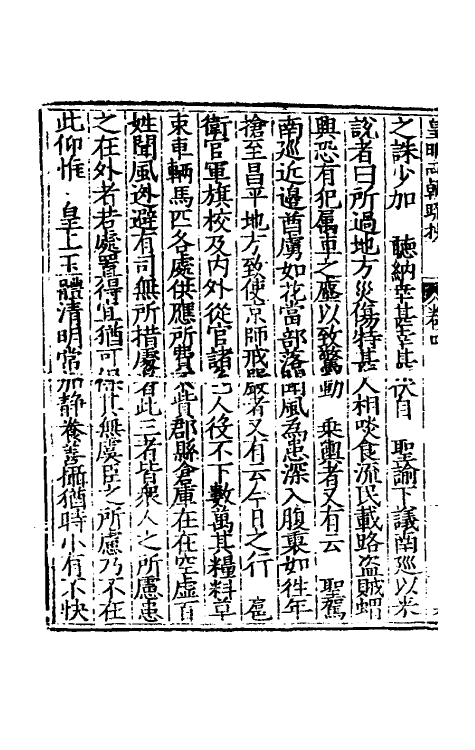 皇明兩朝疏抄 卷四
之誅少加 聽納幸甚幸甚伏自 聖諭下議南廵以來
說者曰所過地方災傷特甚人相啖食流民載路盗賊蝟
興恐有犯屬車之塵以致驚動 乗輿者又有云 聖駕
南廵近邊酋虜如花當部落聞風為患深入腹裏如徃年
搶至昌平地方致使京師戒嚴者又有云今日之行 扈
衛官軍旗校及内外從官諸色人役不下數萬其糧料草
束車輛馬匹各處供應所費不貲郡縣倉庫在在空虚百
姓聞風逃避有司無所措處者此三者皆衆人之所慮患
之在外者若處置得宜猶可保其無虞臣之所慮乃不在
此仰惟 皇上玉體清明常加静養善攝猶時小有不快